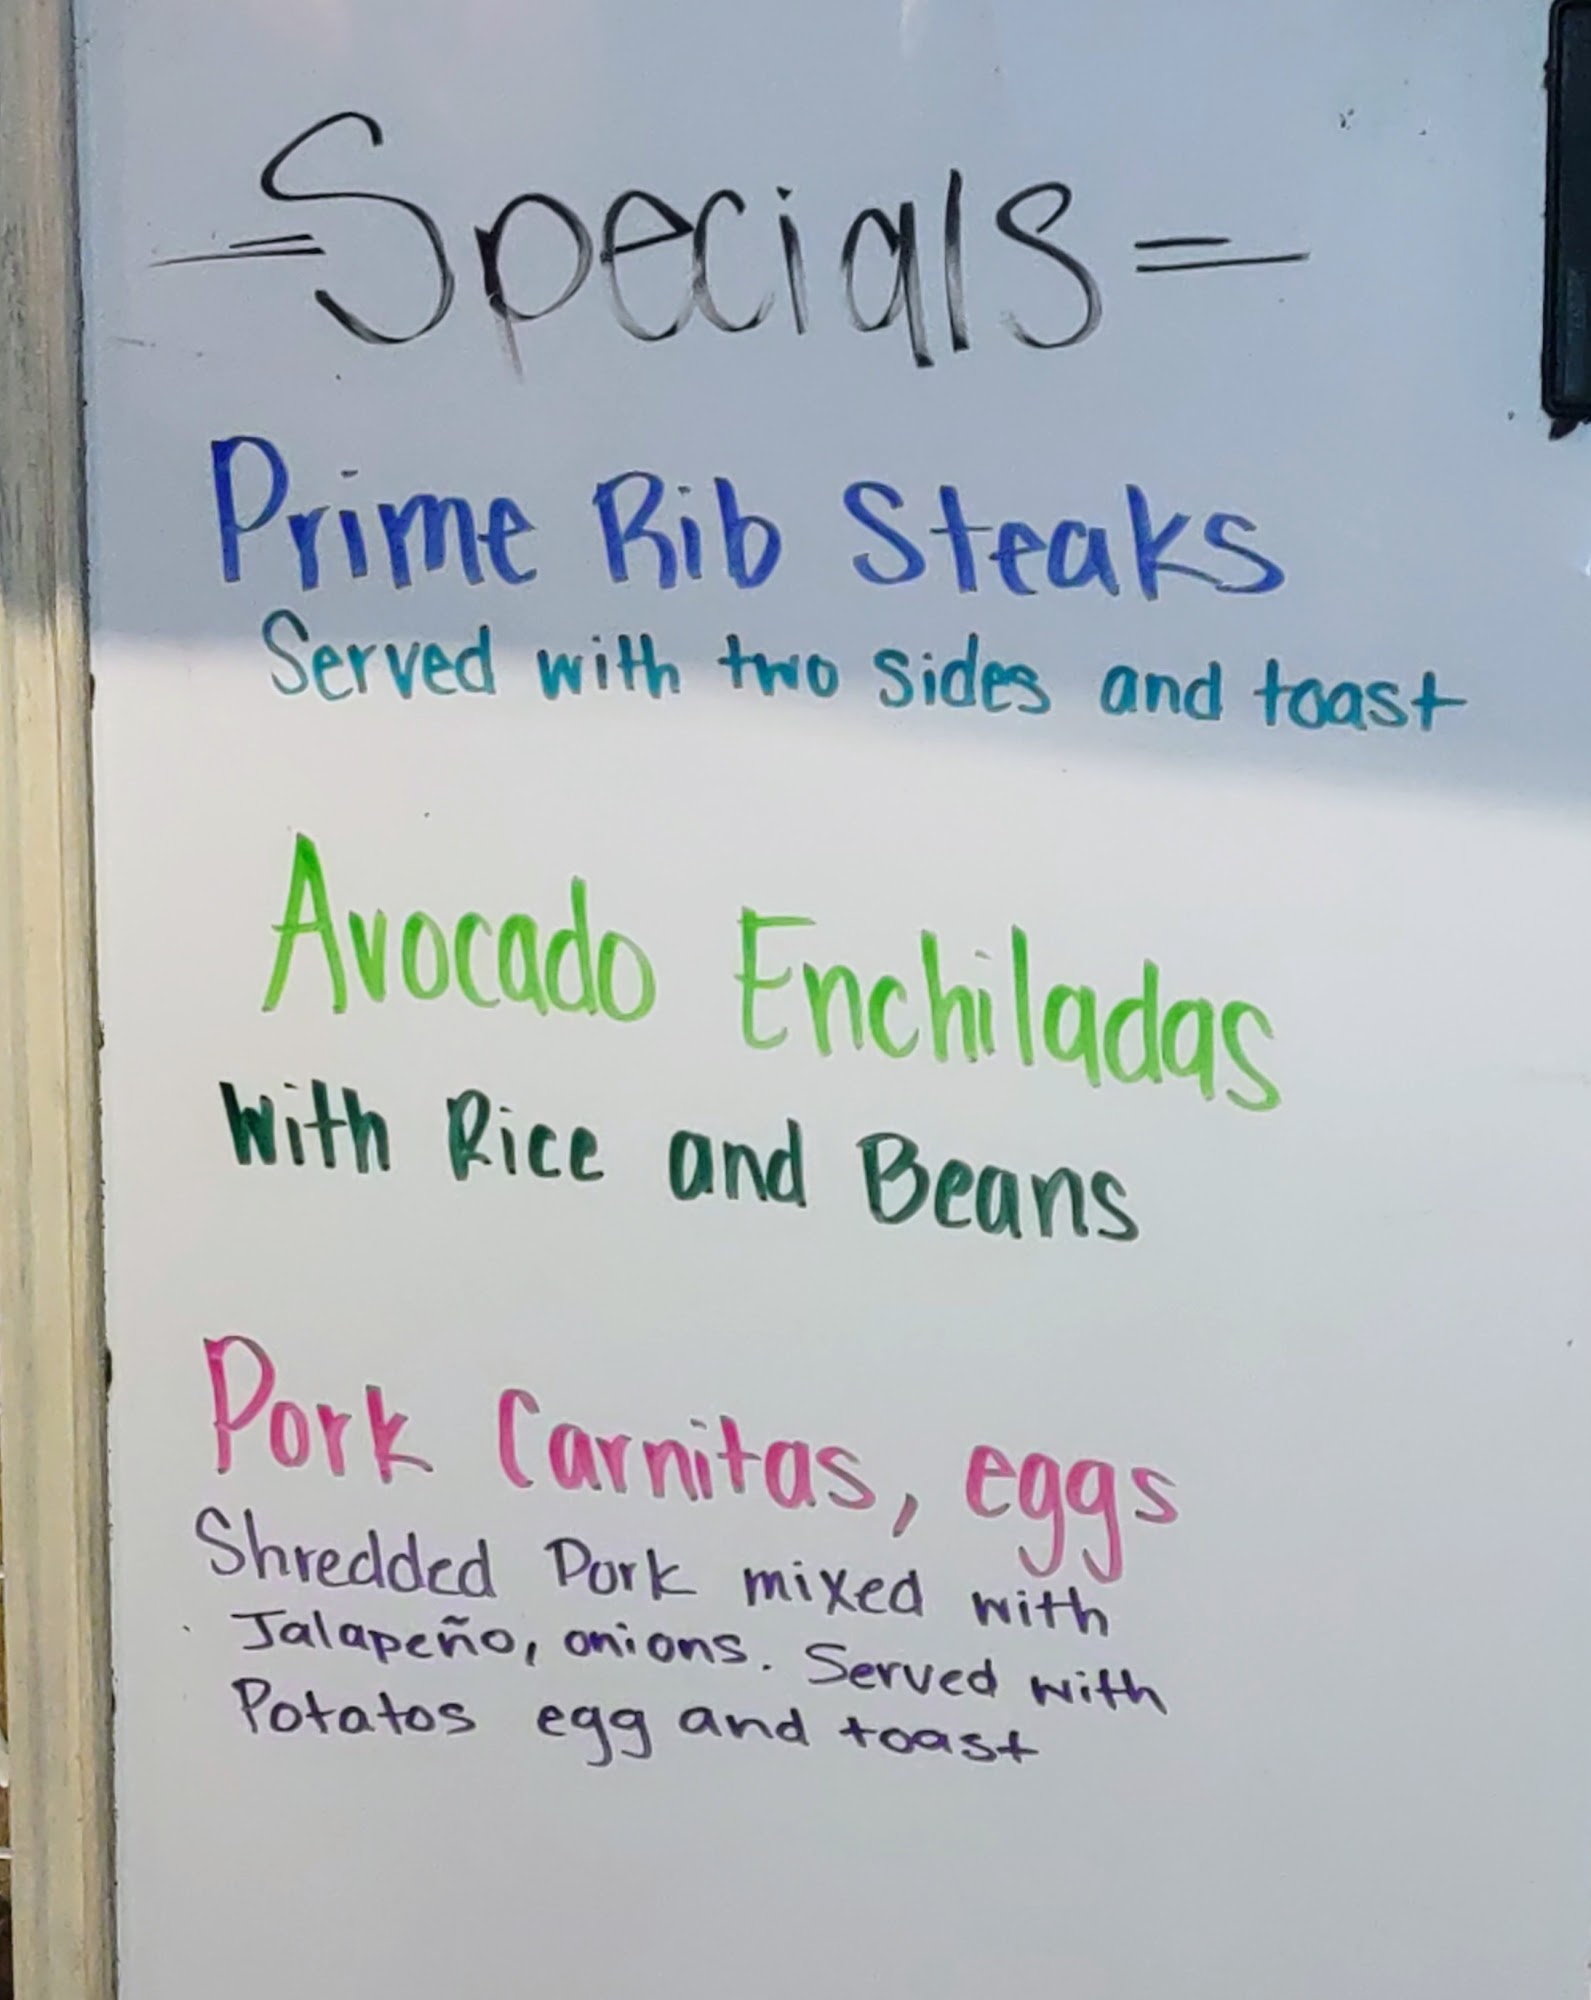 =Specials=
Prime Rib Steaks
Served with two sides and toast
Avocado Enchiladas
With Rice and Beans
Pork Carnitas, eggs
Shredded Pork mixed with
Jalapeño, onions. Served with
Potatos egg and toast